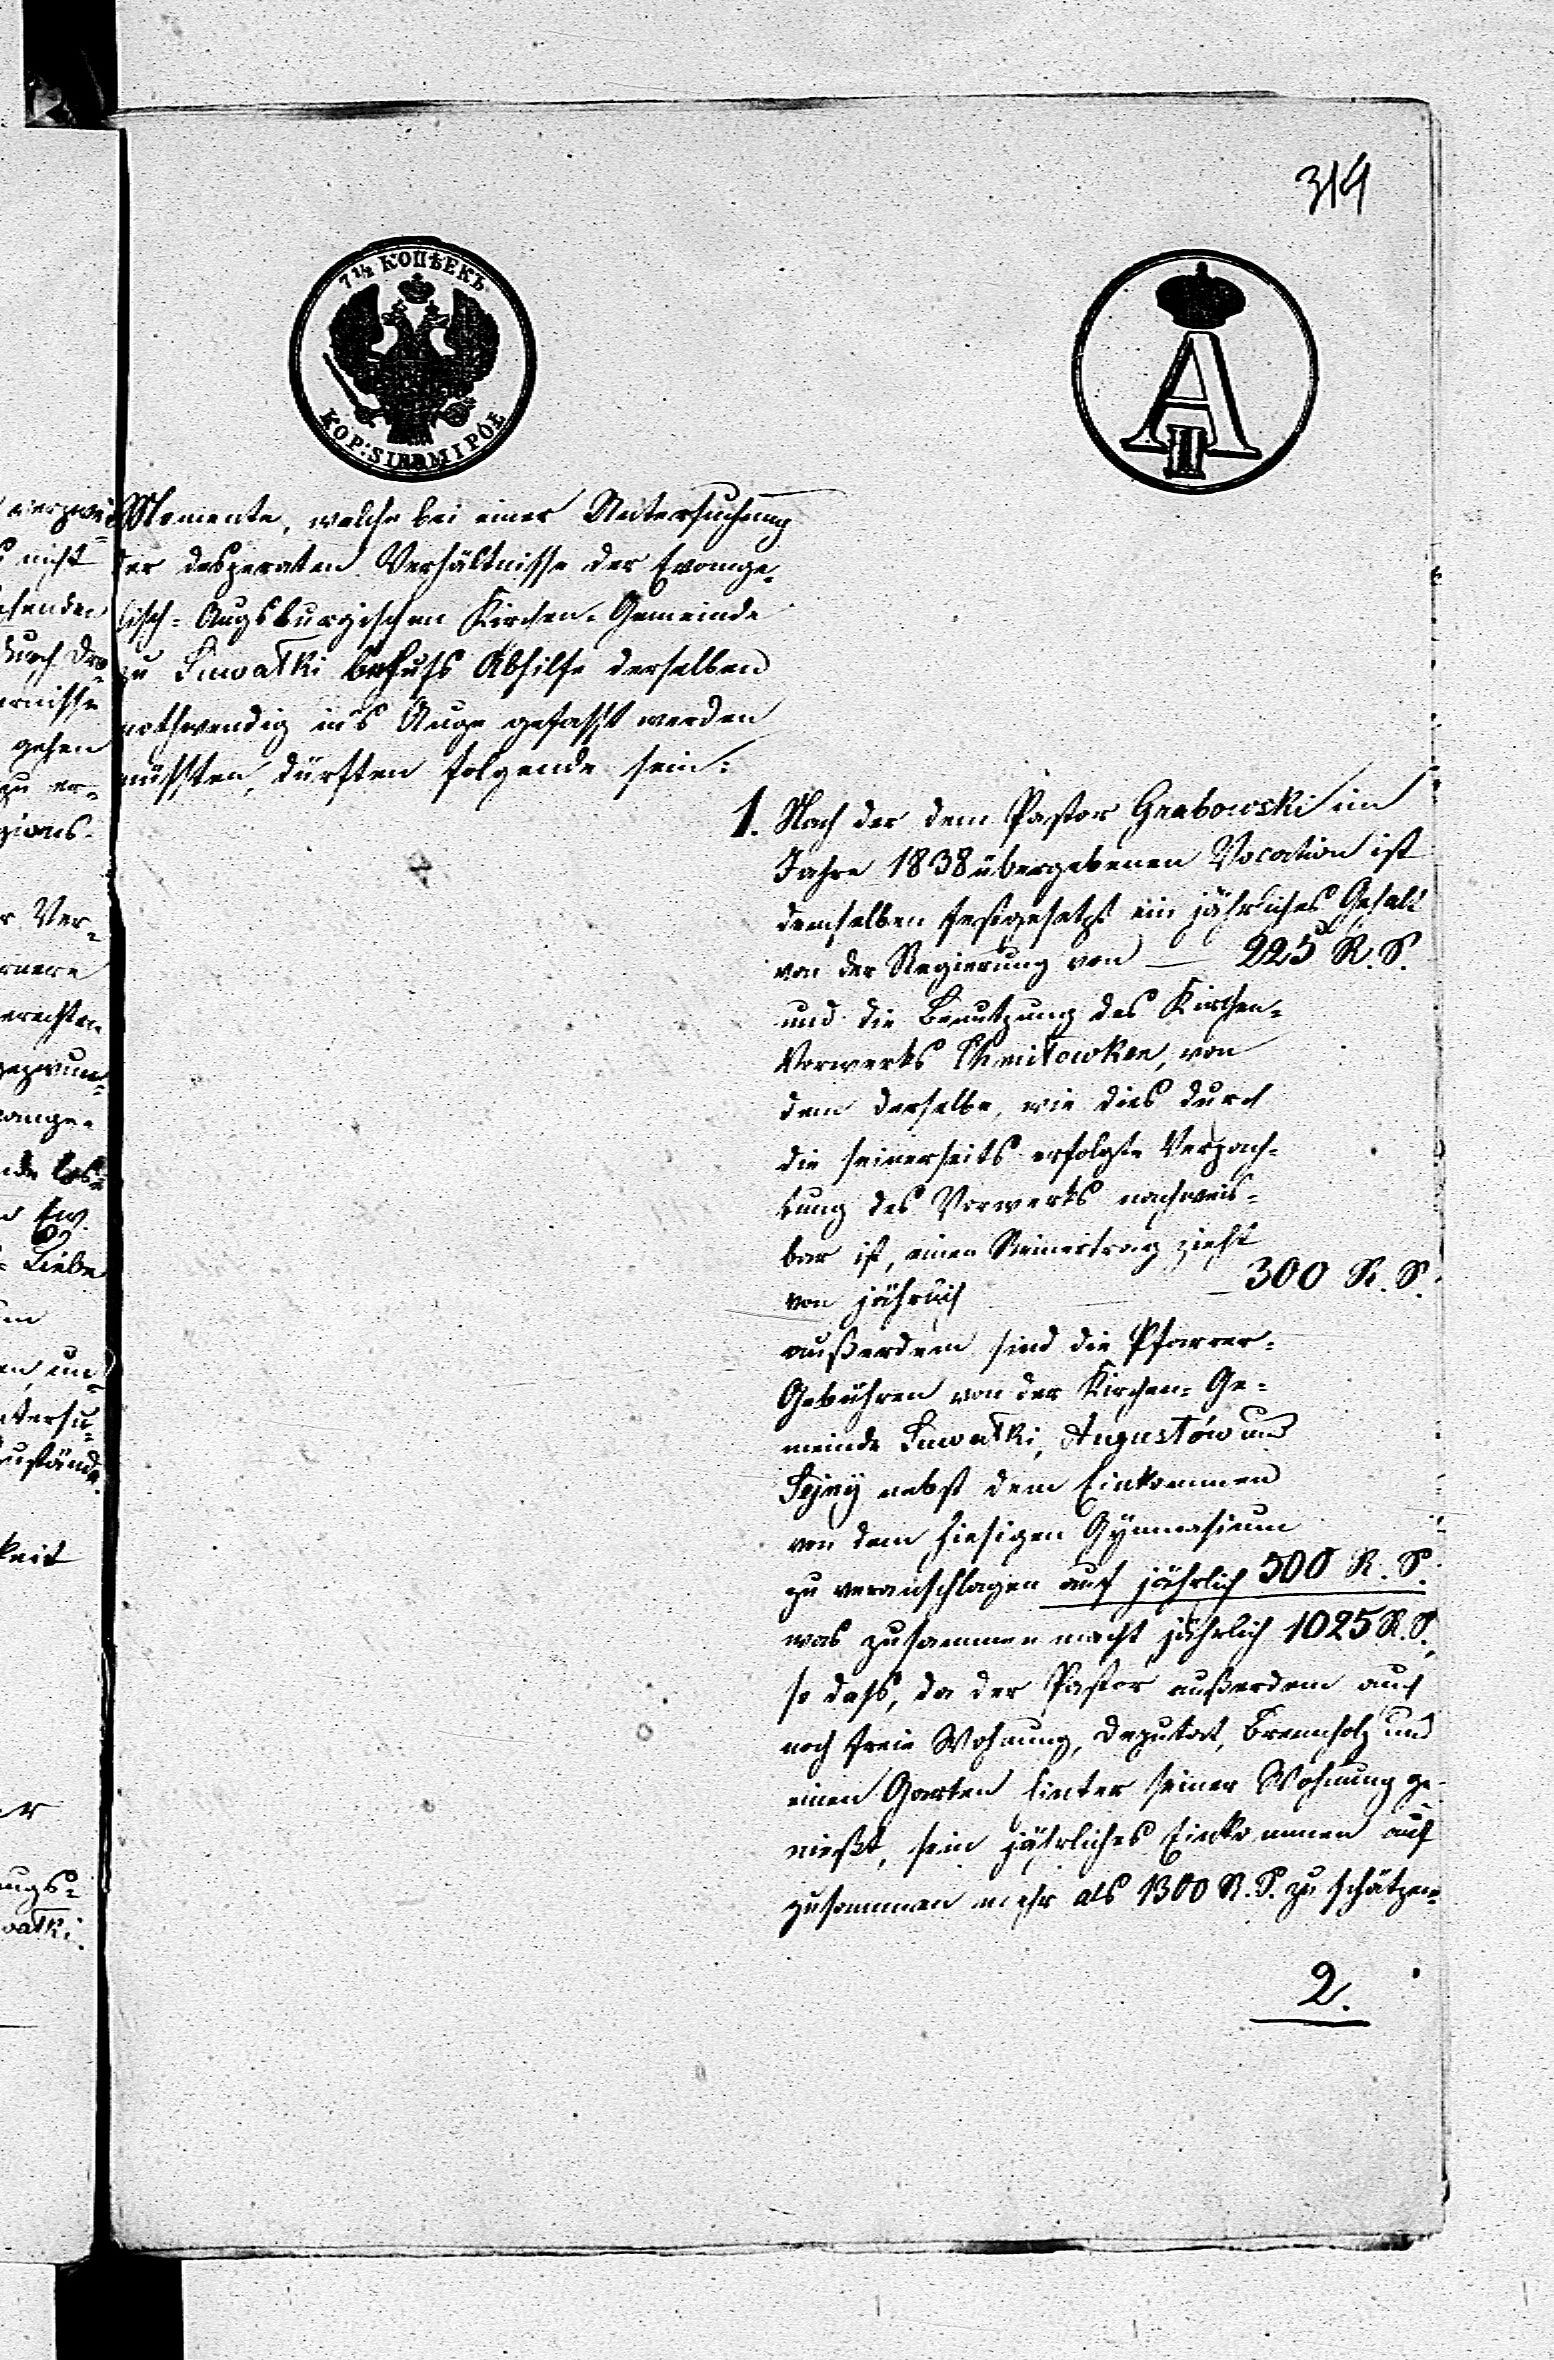 319
7½ КОПѢЕКЪ
KOP: SIEDM I PÓŁ
A
II
Momente, welche bei einer Untersuchung
der desperaten Verhältnisse der Evange-
lisch-Augsburgischen Kirchen-Gemeinde
zu Suwałki behufs Abhilfe derselben
nothwendig in's Auge gefasst werden
müssten, dürften folgende sein:
1. Nach der dem Pastor Grabowski im
Jahre 1838 übergebenen Vocation ist
demselben festgesetzt ein jährliches Gehalt
von der Regierung von — 225 R. S.
und die Benutzung des Kirchen-
Vorwerks von
dem derselbe, wie dies durch
die seinerseits erfolgte Verpach-
tung des Vorwerks nachweis-
bar ist, einen Reinertrag zieht
von jährlich — 300 R. S.
außerdem sind die Pfarrer-
Gebühren von der Kirchen-Ge-
meinde Suwałki, Augustów und
Sejny nebst dem Einkommen
von dem hiesigen Gymnasium
zu veranschlagen auf jährlich 500 R. S.
was zusammen macht jährlich 1025 R. S.,
so dass, da der Pastor außerdem auch
noch freie Wohnung, Deputat, Brennholz und
einen Garten hinter seiner Wohnung ge-
nießt, sein jährliches Einkommen auf
zusammen mehr als 1300 R. S. zu schätzen
2.
nicht
durch
gehen
zu er-
r Ver-
Liebe
keit